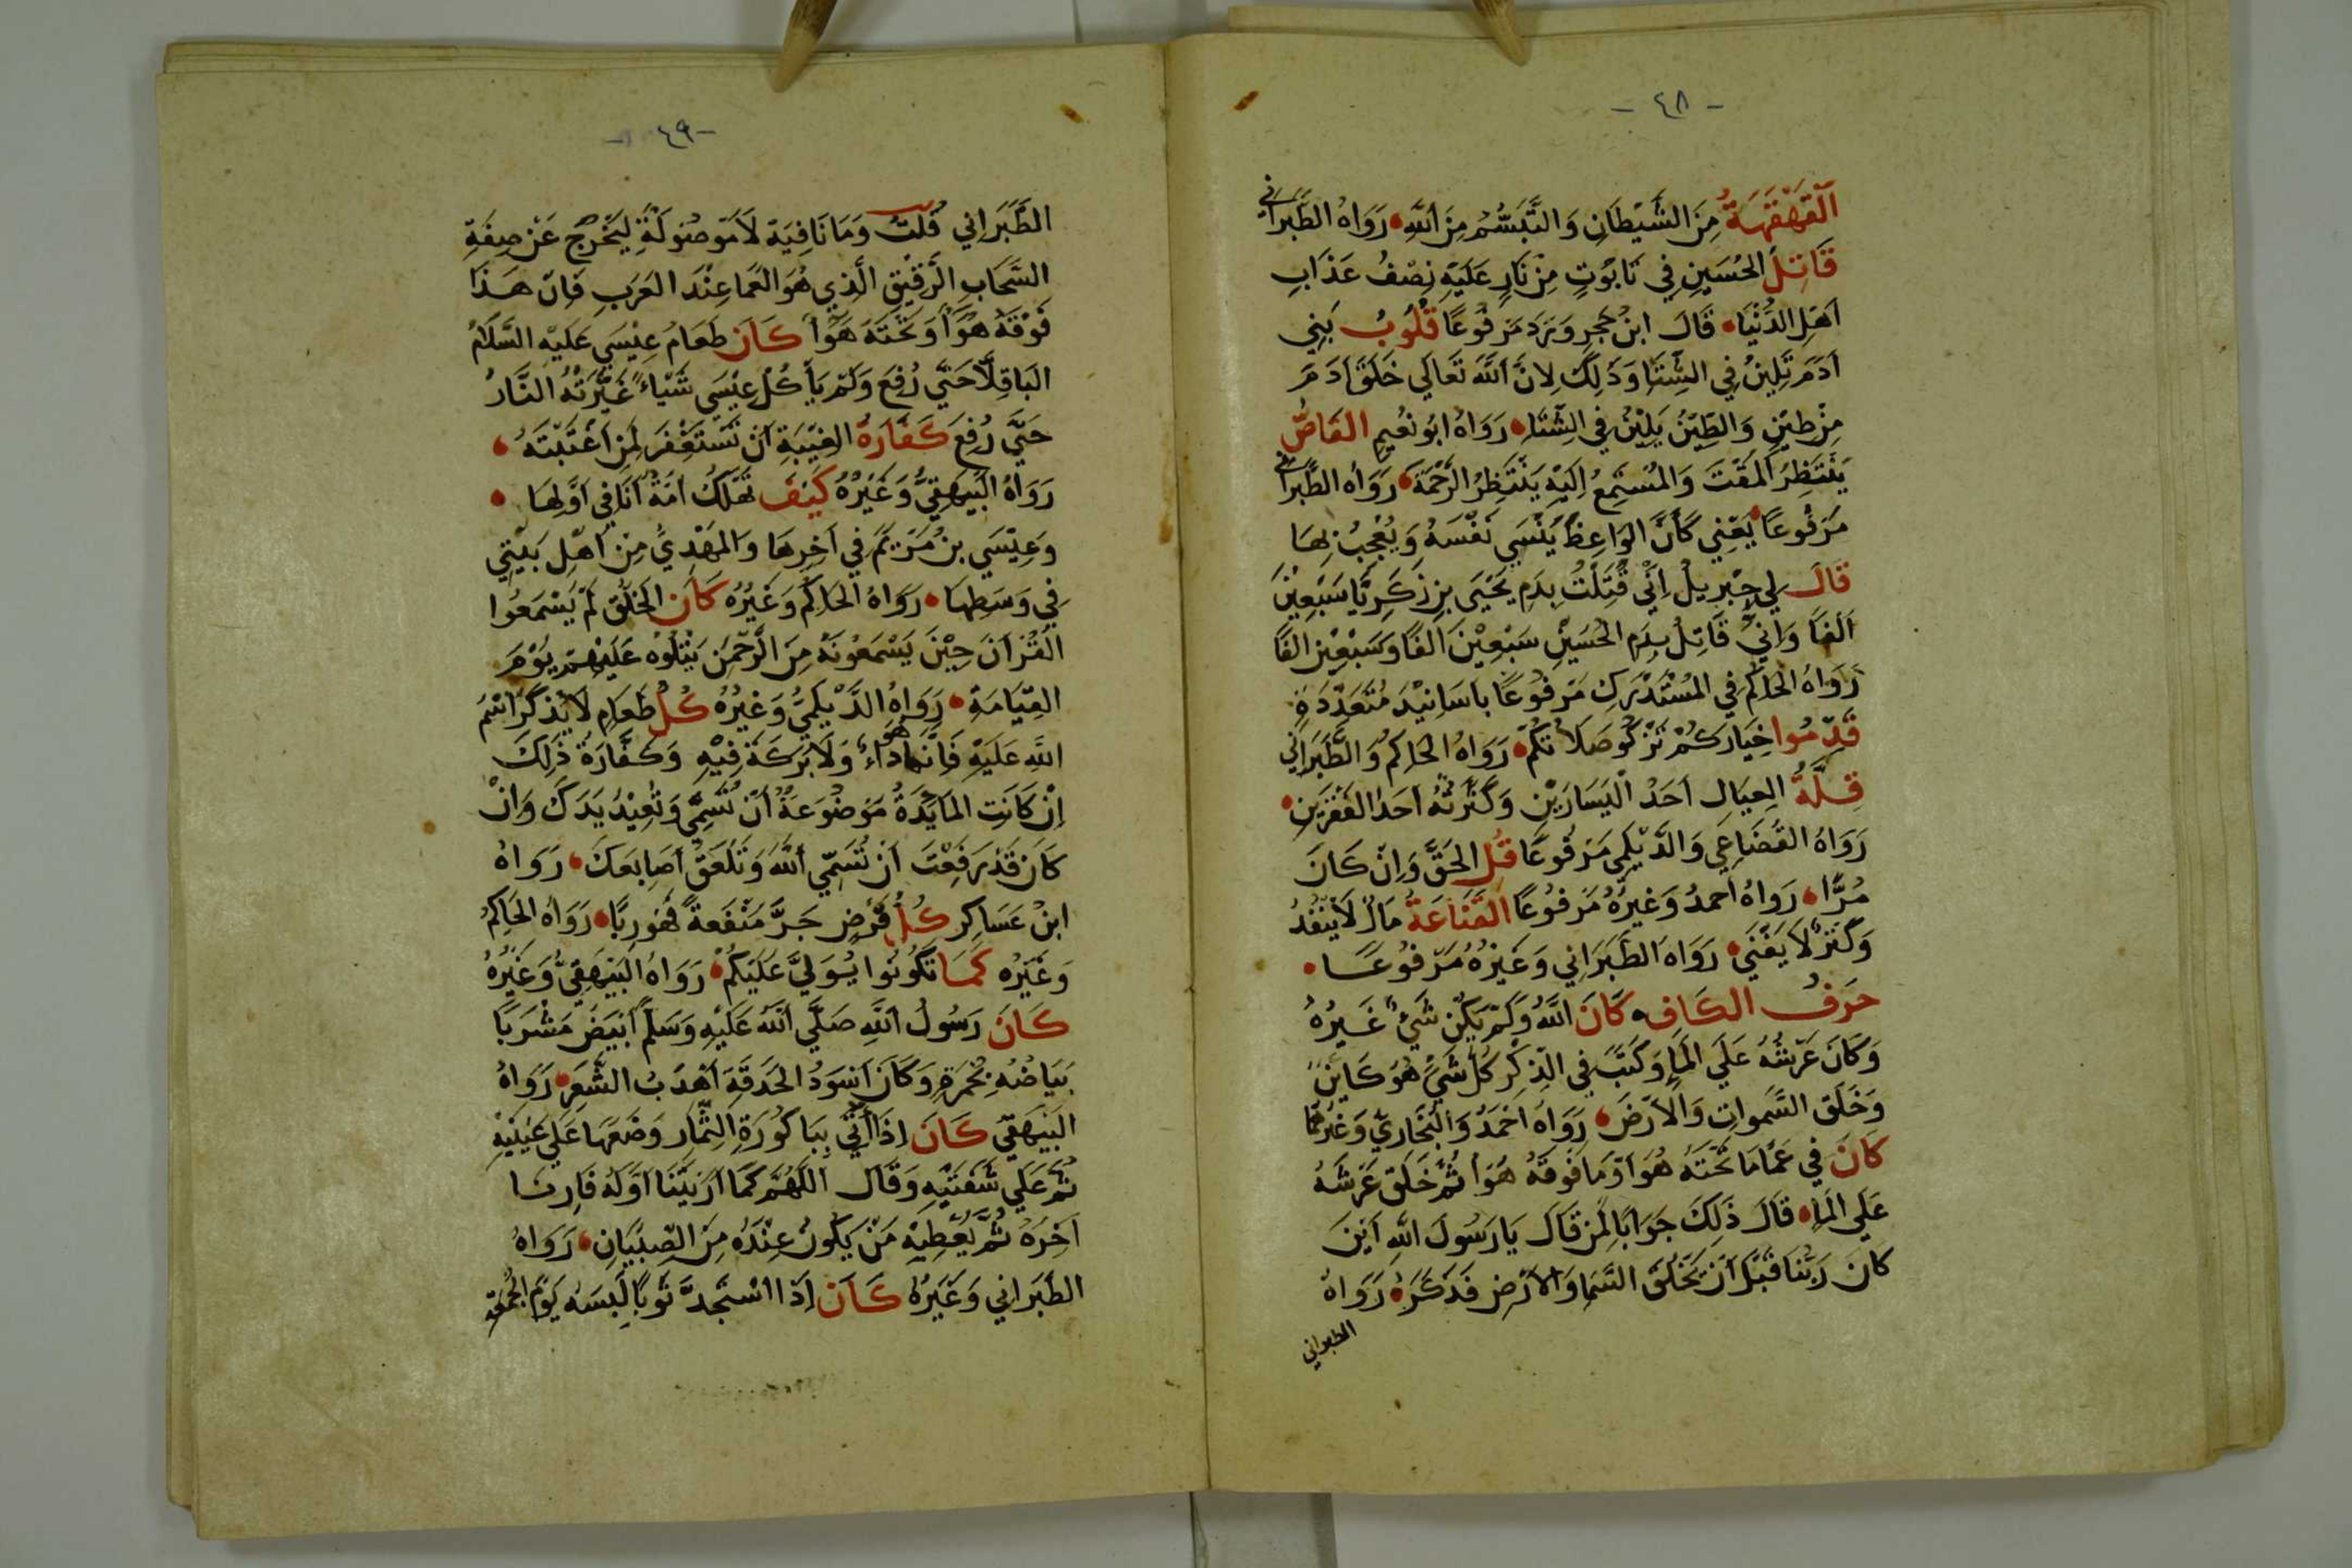 -٤٨-
اَلقَهْقَهَةُ مِنَ الشَّيْطَانِ وَالتَّبَسُّمُ مِنَ اللَّهِ رَوَاهُ الطَّبَرَاني
قَاتِلُ الحُسَيْنِ فِي تَابُوْتٍ مِنْ نَارٍ عَلَيْهِ نِصْفُ عَذَابِ
اَهْلِ الدُّنْيَا قَالَ ابنُ حَجَرٍ وَرَدَ مَرفُوعًا قُلُوبُ بَنِي
اَدَمَ تَلِينُ فِي الشِّتَا وَذَلِكَ لِانَّ اللَّهَ تَعَالَي خَلَقَ اَدَمَ
مِنْ طِيْنٍ وَالطِّيْنُ يَلِيْنُ فِي الشِّتَاءِ رَوَاهُ ابُو نُعَيمٍ القَاصُّ
يَنْتَظِرُ المَقْتَ وَالمُسْتَمِعُ اِلَيْهِ يَنْتَظِرُ الرَّحْمَةَ رَوَاه الطَّبَراني
مَرْفُوعًا يَعْنِي كَأَنَّ الوَاعِظَ يَنْسَي نَفْسَهُ وَيُعْجِبُ بِهَا
قَالَ لِي جِبْرِيلُ اِنِّي قَتَلْتُ بِدَمِ يَحْيَى بِنِ زَكَرِيَّا سَبْعِيْنَ
اَلْفًا وَاِنِّي قَاتِلُ بِدَمِ الحُسَيْنِ سَبْعِيْنَ الفًا وَسَبْعِيْنَ الفًا
رَوَاهُ الحَاكِمُ فِي المُسْتَدْرَكِ مَرْفُوعًا بِاَسَانِيْدَ مُتَعَدِّدَةٍ
قَدِّمُوا خِيَارَكُمْ تَزْكُو صَلَاتُكُمْ رَوَاهُ الحَاكِمُ وَالطَّبَرَانِي
قِلَّةُ العِيَالِ اَحَدُ الْيَسَارَيْنِ وَكَثْرَتُهُ اَحَدُ الفَقْرَيْنِ
رَوَاهُ القُضَاعِي وَالدَّيْلَمِي مَرْفُوعًا قُلِ الحَقَّ وَاِنْ كَانَ
مُرًّا رَوَاهُ اَحمدُ وَغيرُهُ مَرْفُوعًا القَنَاعَةُ مَالٌ لَايَنْفَدُ
وَكَنْزٌ لَا يَفْنَي رَوَاهَ الطَبَرَانِي وَغَيْرُهُ مَرْفُوعًا
حَرفُ الكَافِ كَانَ اللَّهُ وَلَمْ يَكُنْ شَيْءٌ غَيْرُهُ
وَكَانَ عَرْشُهُ عَلَي المَاءِ وَكَتَبَ فِي الذِّكْرِ كُلَّ شَيْءٍ هُوَ كَايِنٌ
وَخَلَقَ السَّمواتِ وَالاَرْضَ رَوَاهُ اَحْمَدُ وَالبُخَارِيُّ وَغَيْرُهُمَا
كَانَ فِي عَمَا مَا تَحْتَهُ هَوَا وَمَا فَوقَهُ هَوَا ثُمَّ خَلَقَ عَرشَهُ
عَلَي المَاءِ قَالَ ذَلِكَ جَوَابًا لِمَنْ قَالَ يَا رَسُولَ اللَّهِ اَيْنَ
كَانَ رَبُّنَا قَبْلَ اَنْ يَخْلُقَ السَّمَا وَالاَرْضِ فَذَكَرَهُ رَوَاهُ
الطبراني
-٤٩-
الطَّبَرَانِي قُلْتُ وَمَا نَافِيَة لَا مَوصُولَةٌ لِيَخْرُجَ عَنْ صِفَةِ
السَّحَابِ الرَّقِيْقِ الَّذِي هُوَ العَمَا عِنْدَ العَرَبِ فَاِنَّ هَذَا
فَوْقَهُ هَوَاً وَتَحْتَهُ هَوَاً كَانَ طَعَامُ عِيْسَي عَلَيْهِ السَّلَامُ
البَاقِلَّا حَتَّي رُفِعَ وَلَمْ يَأكُلْ عِيْسَي شَيْاءً غَيَّرَتْهُ النَّارُ
حَتَّي رُفِعَ كَفَّارَةُ الغِيْبَةِ اَنْ تَسْتَغْفِرَ لِمَنْ اغْتَبْتَهُ
رَوَاهُ البَيْهَقِيُّ وَغَيْرُهُ كَيْفَ تَهْلَكُ اُمَّةٌ اَنَا فِي اَوَّلِهَا
وَعِيْسَي بنُ مَرْيَمَ فِي اَخِرِهَا وَالمَهْدِيُّ مِنْ اَهْلِ بَيْتِي
فِي وَسَطِهَا رَوَاهُ الحَاكِمُ وَغَيْرُهُ كَأَنَ الخَلْقَ لَمْ يَسْمَعُوا
القُرْاَنَ حِيْنَ يَسْمَعُونَهُ مِنَ الرَّحْمَنِ يَتْلُوهُ عَلَيْهِمْ يَوْمَ
القِيَامَةِ رَوَاهُ الدَّيْلَمِيُّ وَغَيْرُهُ كُلُّ طَعَامٍ لَا يُذكَرُ اسْمُ
اللَّهِ عَلَيْهِ فَاِنَّمَا هُوَ دَاءٌ وَلَا بَرَكَةَ فِيْهِ وَكَفَّارَةُ ذَلِكَ
اِنْ كَانَتِ المَايِدَةُ مَوْضُوعَةً اَنْ تُسَمِّيَ وَتُعِيْدَ يَدَكَ وَاِنْ
كَانَ قَدْ رَفَعْتَ اَنْ تُسَمِّيَ اللَّهَ وَتَلْعَقَ اَصَابِعَكَ رَوَاهُ
ابنُ عَسَاكِر كُلُّ قَرْضٍ جَرَّ مَنْفَعةً فَهُوَ رِبًا رَوَاهُ الحَاكِمُ
وَغَيْرُه كَمَا تَكُونُوا يُوَلِيَّ عَلَيْكُمْ رَوَاهُ البَيْهَقِيُّ وَغَيْرُهُ
كَانَ رَسُولُ اللَّهِ صَلَّي اللَّهُ عَلَيْهِ وَسَلَّمَ اَبْيَضَ مَشْرَبًا
بَيَاضُهُ بِحُمْرَةٍ وَكَانَ اَسْوَدُ الحَدَقَةِ اَهْدَبُ الشَّعَرِ رَوَاهُ
البَيْهَقِي كَانَ اِذَا اُتِيَ بِبَاكُورَةِ الثِّمَارِ وَضَعَهَا عَلَي عَيْنَيْهِ
ثُمَّ عَلَي شَفَتَيْهِ وَقَالَ اللَّهُمَّ كَمَا اَرَيْتَنَا اَوَّلَهُ فَارِنَا
اَخِرَهُ ثُمَّ يُعْطِيْهِ مَنْ يَكُونُ عِنْدَهُ مِنَ الصِّبْيَانِ رَوَاهُ
الطَبَراني وَغَيْرُهُ كَانَ اِذَا اسْتَجَدَّ ثَوبًا لَبِسَهُ يَوْمَ الجُمُعَةِ